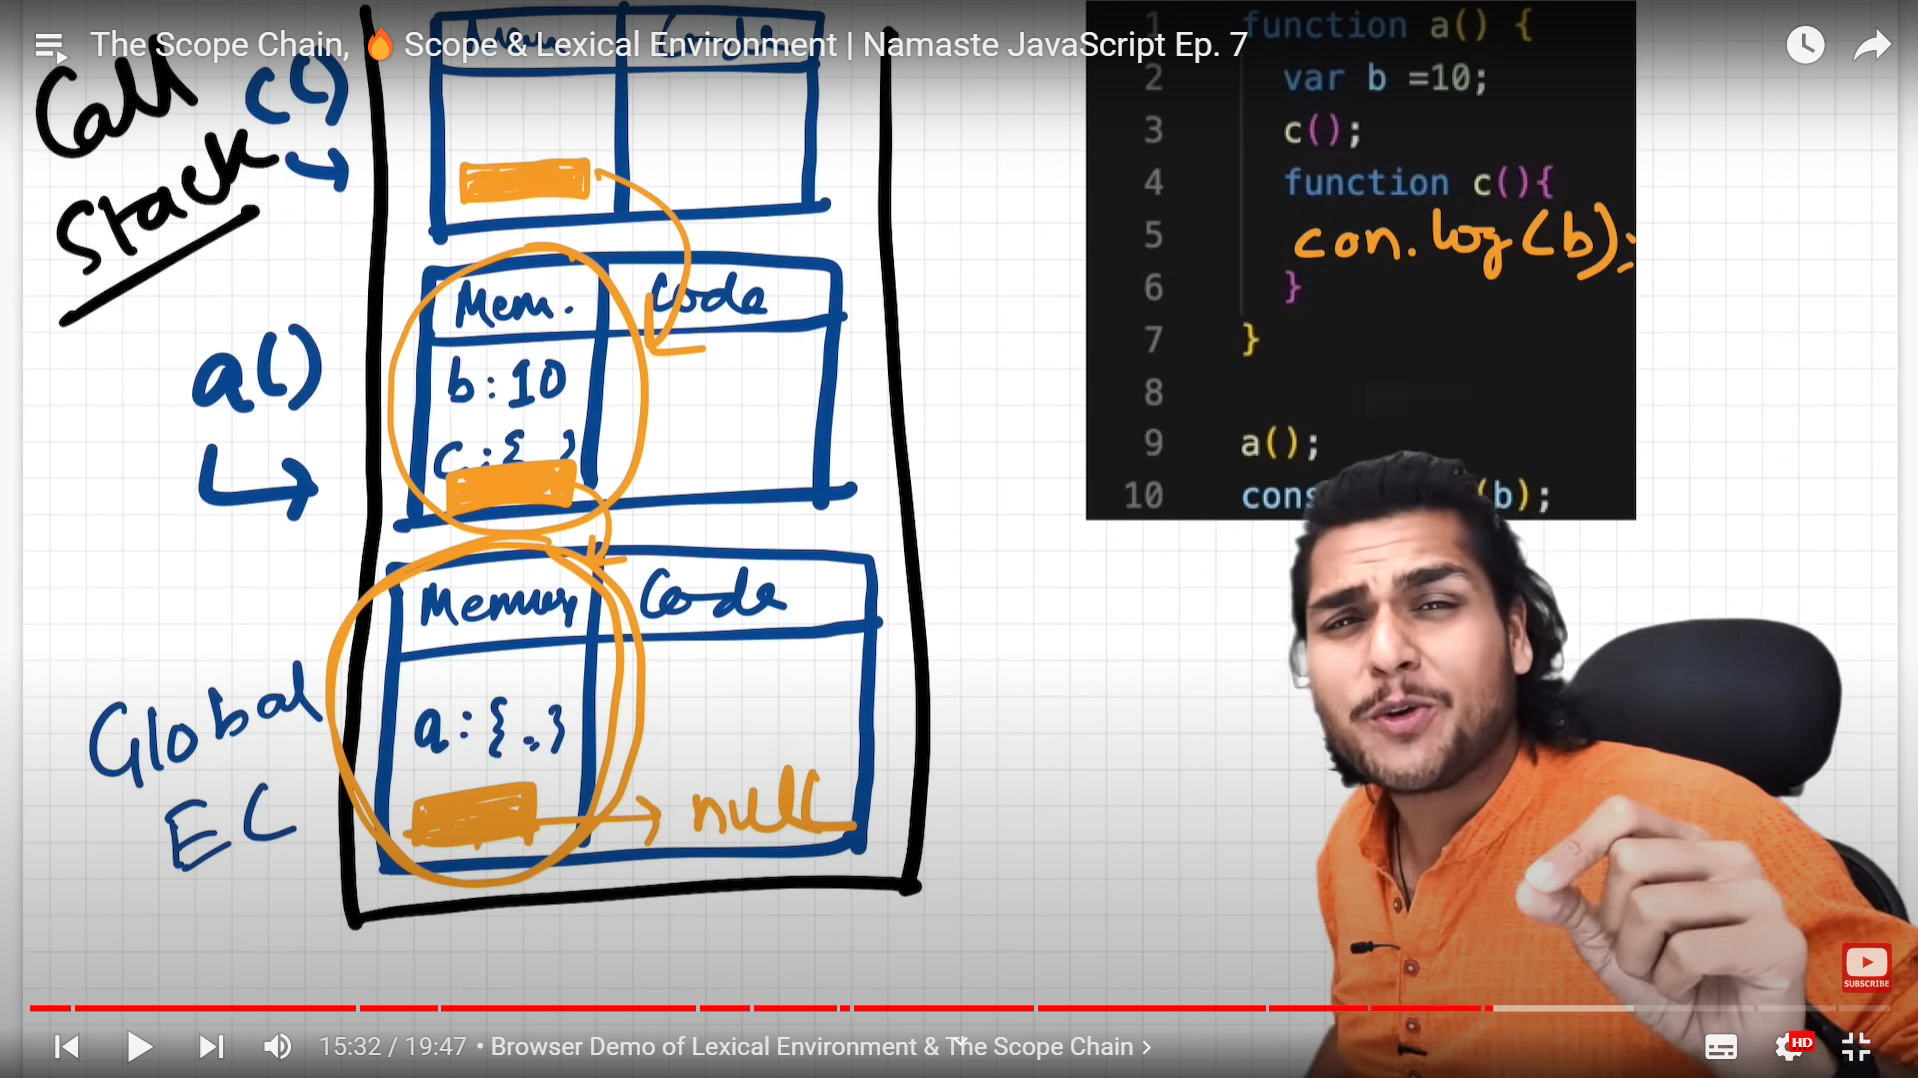 The Scope Chain, 🔥 Scope & Lexical Environment | Namaste JavaScript Ep. 7
Call
Stack
c()
a()
Mem.
Code
b:10
c:{ }
Global
EC
Memory
Code
a:{..}
null
1 function a() {
2 var b =10;
3 c();
4 function c(){
5 con.log(b);
6 }
7 }
8
9 a();
10 cons (b);
SUBSCRIBE
15:32 / 19:47 • Browser Demo of Lexical Environment & The Scope Chain
HD